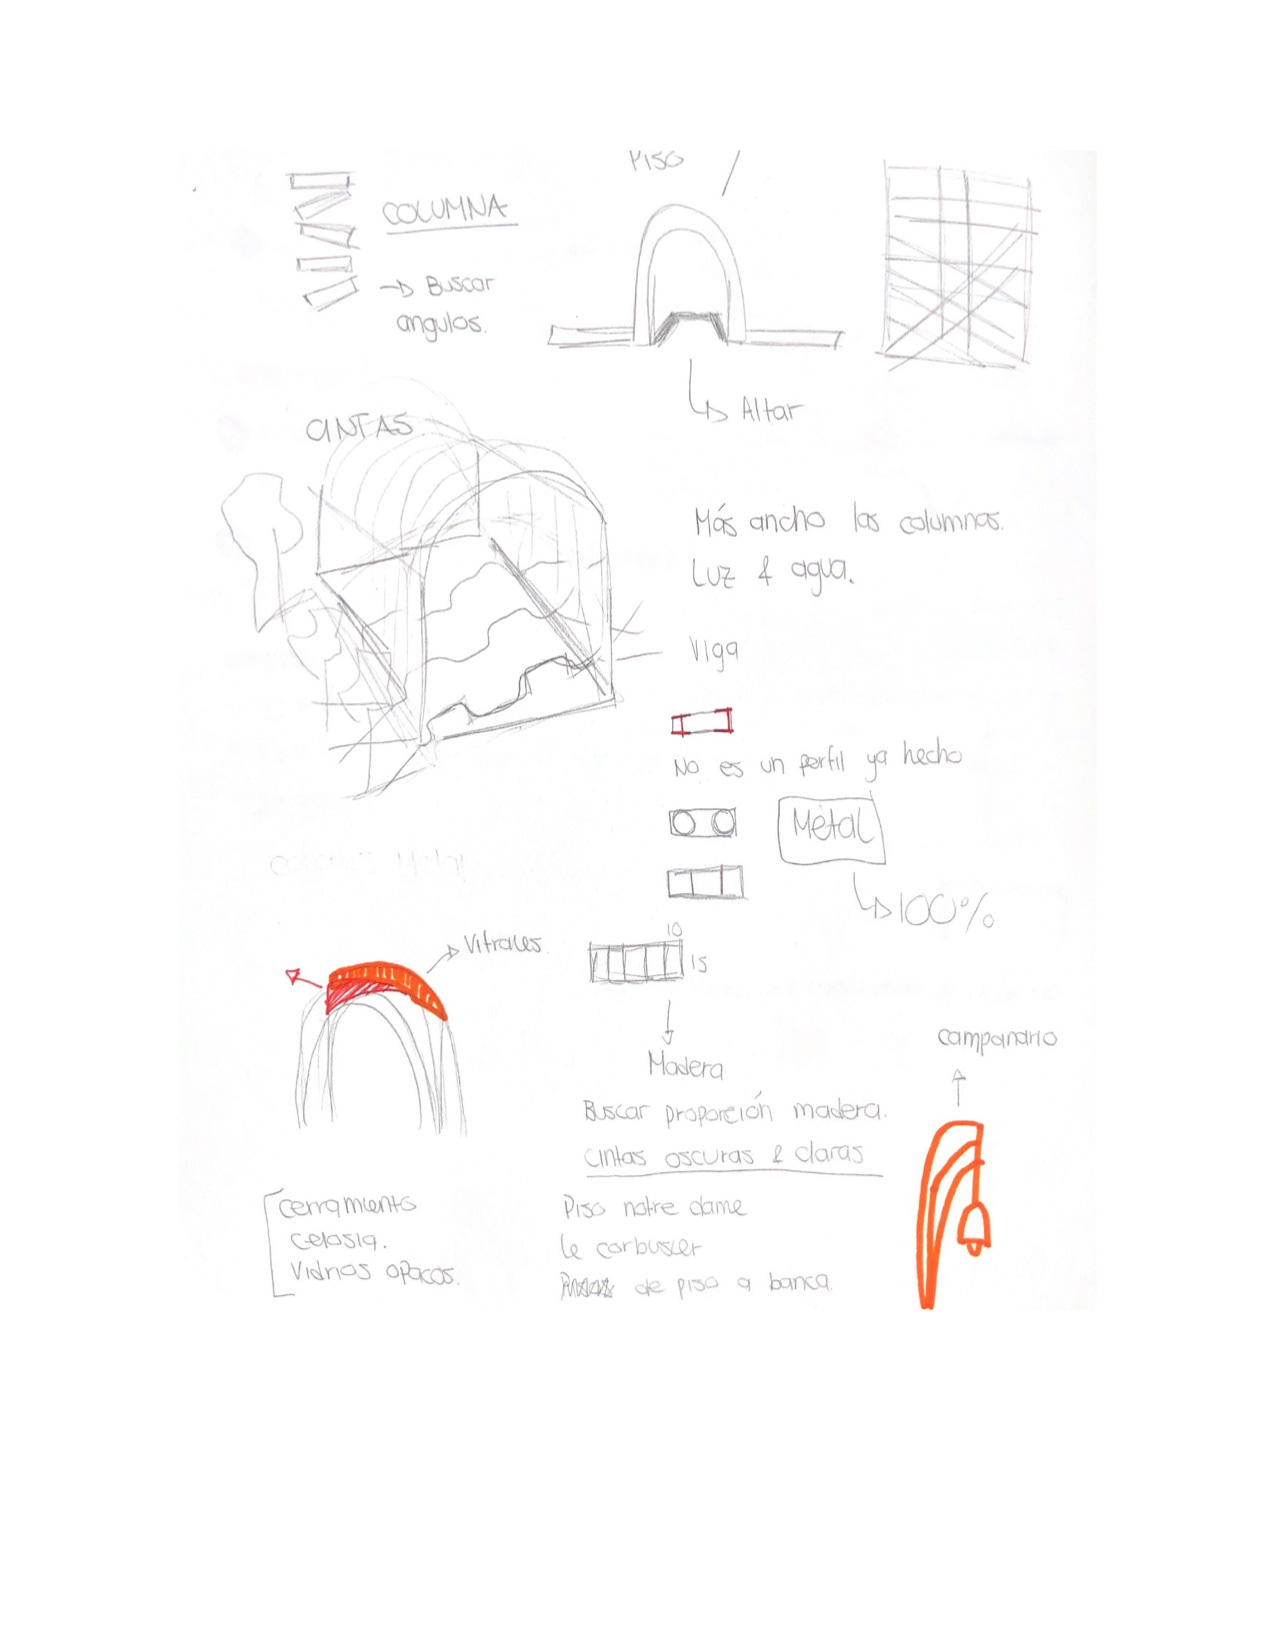 PISO
COLUMNA
→ Buscar
angulos.
Altar
CINTAS
Más ancho las columnas.
Luz & agua.
Viga
No es un perfil ya hecho
Metal
100%
Vitrales.
10
15
Madera
Buscar proporción madera.
cintas oscuras & claras
campanario
cerramiento
celosia.
Vidrios opacos.
Piso notre dame
le corbuscer
de piso a banca.